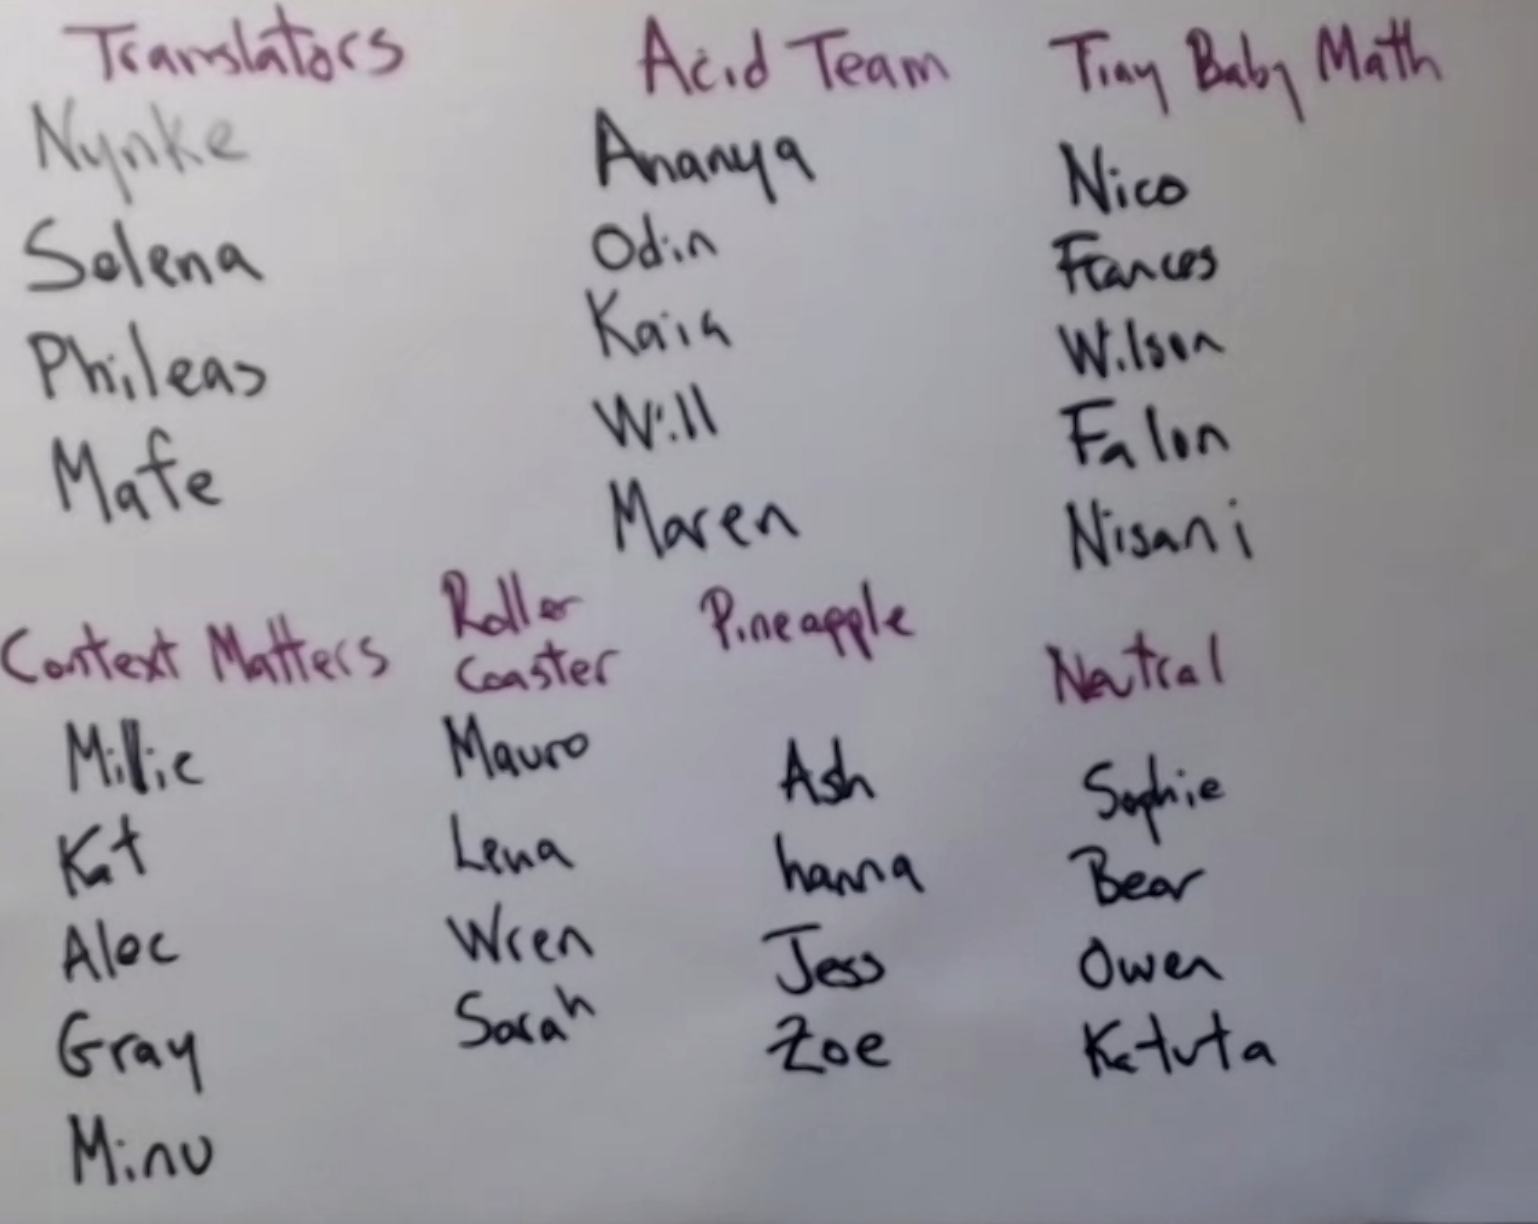 Translators
Nynke
Selena
Phileas
Mafe
Acid Team
Ananya
Odin
Kaia
Will
Maren
Tiny Baby Math
Nico
Frances
Wilson
Falon
Nisani
Context Matters
Millie
Kat
Alec
Gray
Minu
Roller
Coaster
Mauro
Lena
Wren
Sarah
Pineapple
Ash
hanna
Jess
Zoe
Neutral
Sophie
Bear
Owen
Katuta